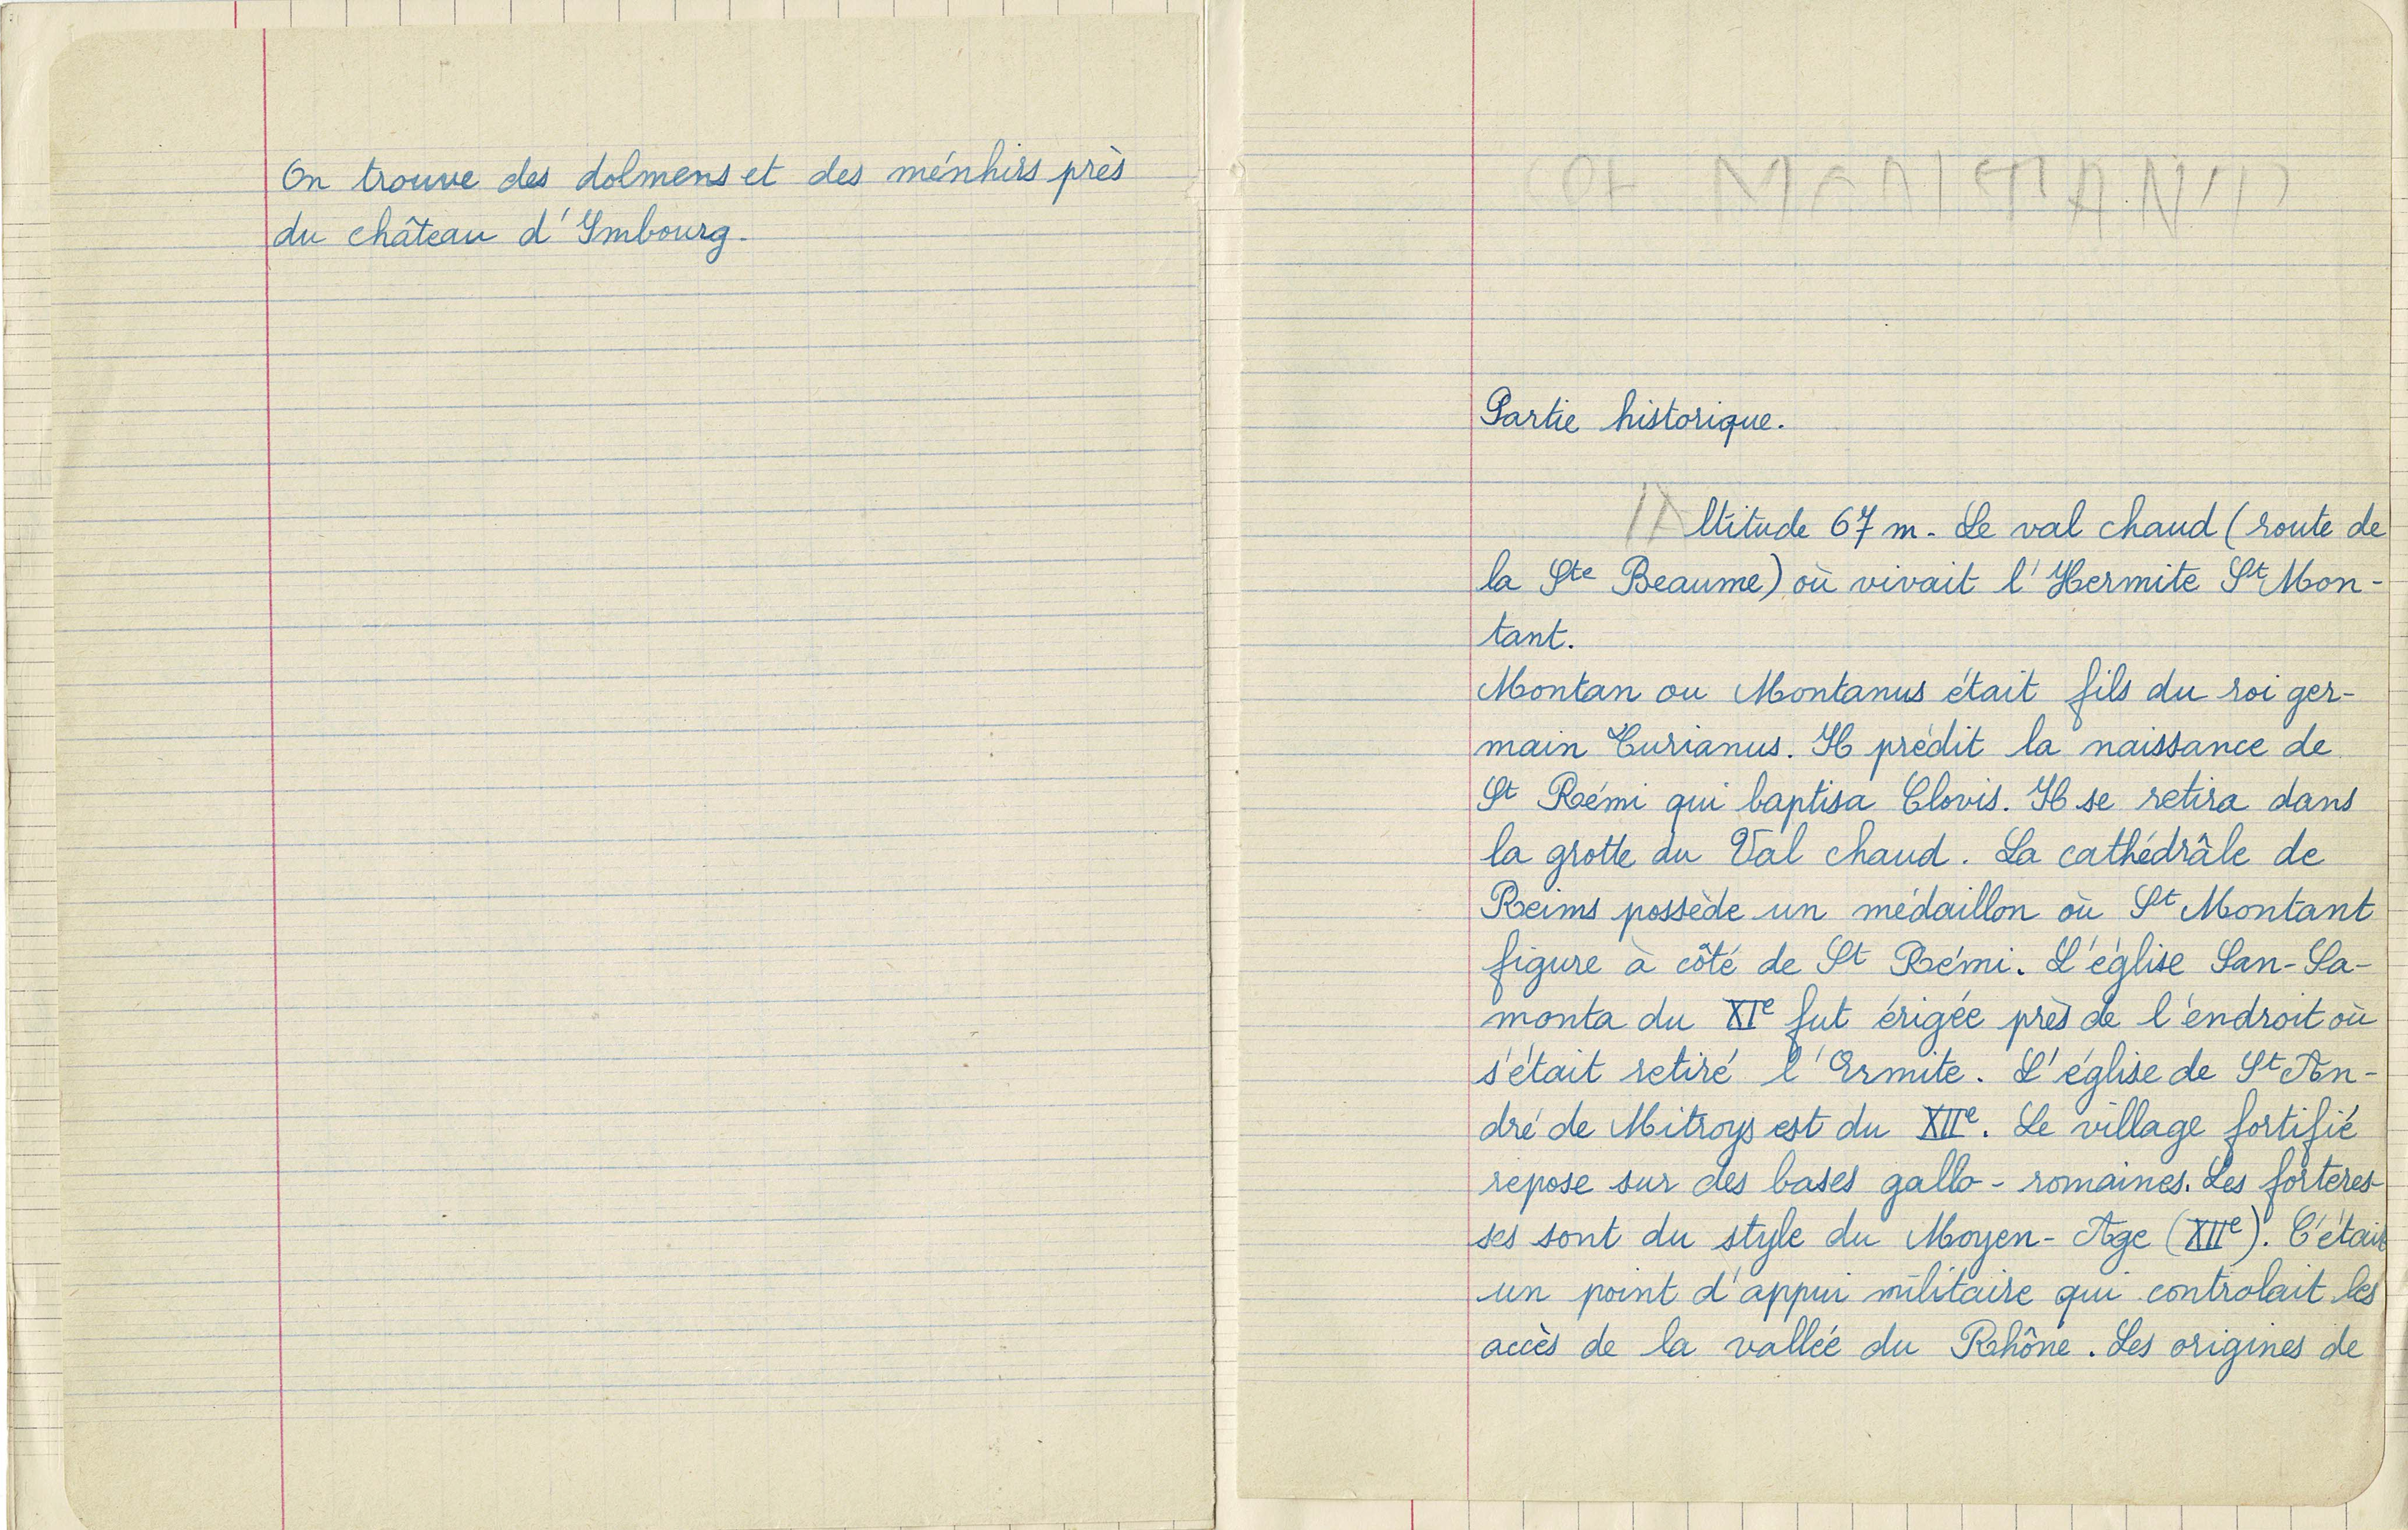 On trouve des dolmens et des ménhirs près
du château d'Imbourg.
St MONTANT
Partie historique.
Altitude 67 m. Le val chaud (route de
la Ste Beaume) où vivait l'Hermite St Mon-
tant.
Montan ou Montanus était fils du roi ger-
main Curianus. Il prédit la naissance de
St Rémi qui baptisa Clovis. Il se retira dans
la grotte du Val chaud. La cathédrâle de
Reims possède un médaillon où St Montant
figure à côté de St Rémi. L'église San-Sa-
monta du XIe fut érigée près de l'endroit où
s'était retiré l'Ermite. L'église de St An-
dré de Mitroys est du XIIe. Le village fortifié
repose sur des bases gallo-romaines. Les forteres-
ses sont du style du Moyen-Age (XIIe). C'était
un point d'appui militaire qui controlait les
accès de la vallée du Rhône. Les origines de